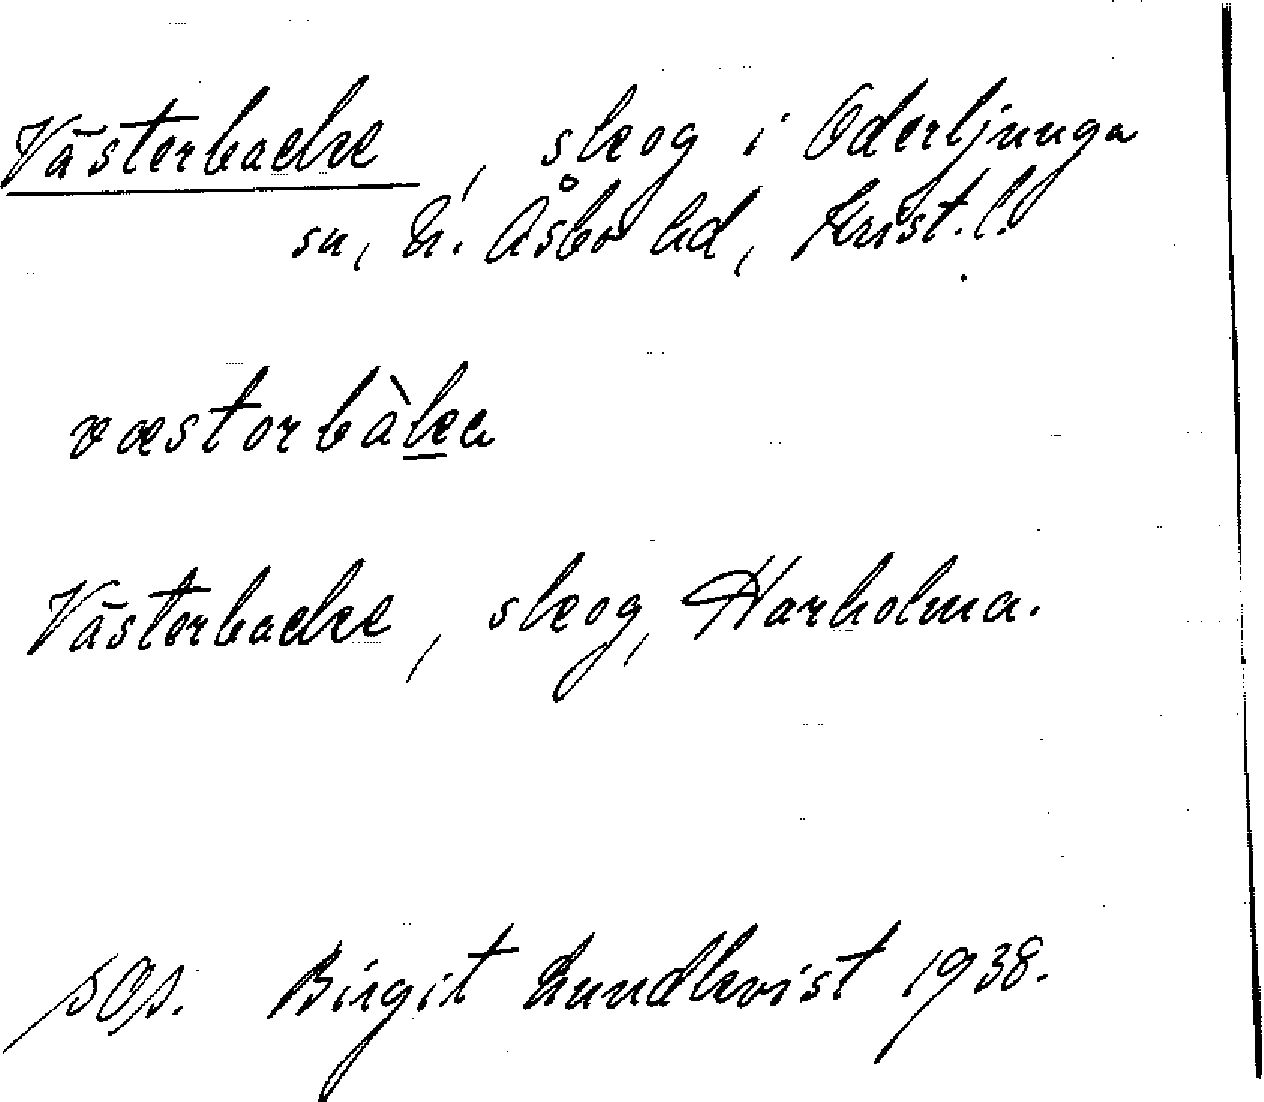 Västerbacke, skog i Oderljunga
sn, N. Åsbo hd, Krist. l.
væstorbàka
Västerbacke, skog, Harholma.
Birgit Lundkvist 1938.